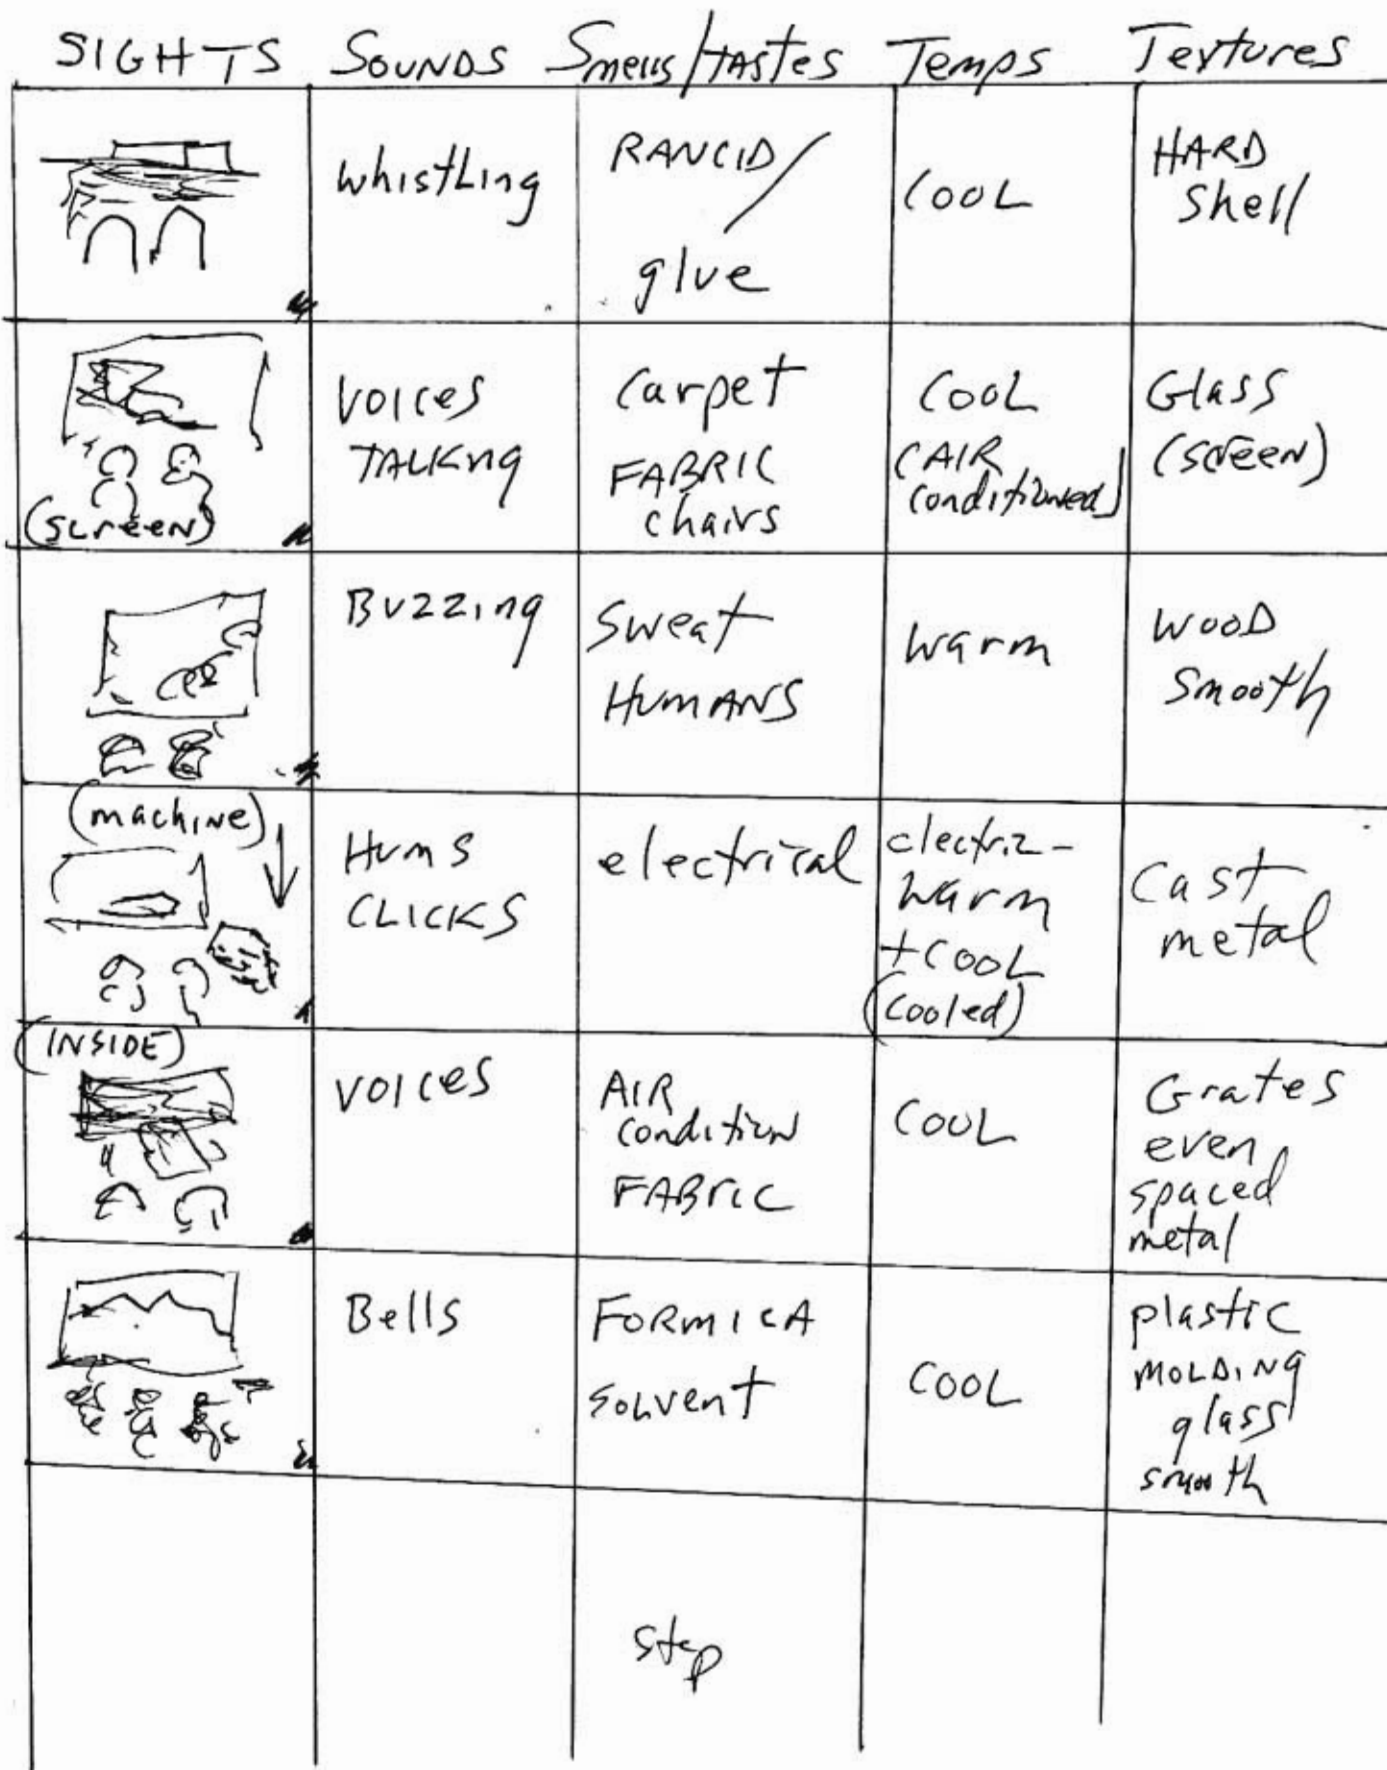 SIGHTS Sounds Smells/tastes Temps Textures
whistling
RANCID/
glue
COOL
HARD
Shell
(screen)
VOICES
TALKng
Carpet
FABRIC
chairs
COOL
(AIR
conditioned)
Glass
(screen)
Buzzing
Sweat
HUMANS
warm
WOOD
Smooth
(machine)
Hums
CLICKS
electrical
warm
+COOL
(cooled)
Cast
metal
(INSIDE)
VOICES
AIR
condition
FABRIC
COOL
Grates
even
spaced
metal
Bells
FORMICA
solvent
COOL
plastic
MOLDING
glass
smooth